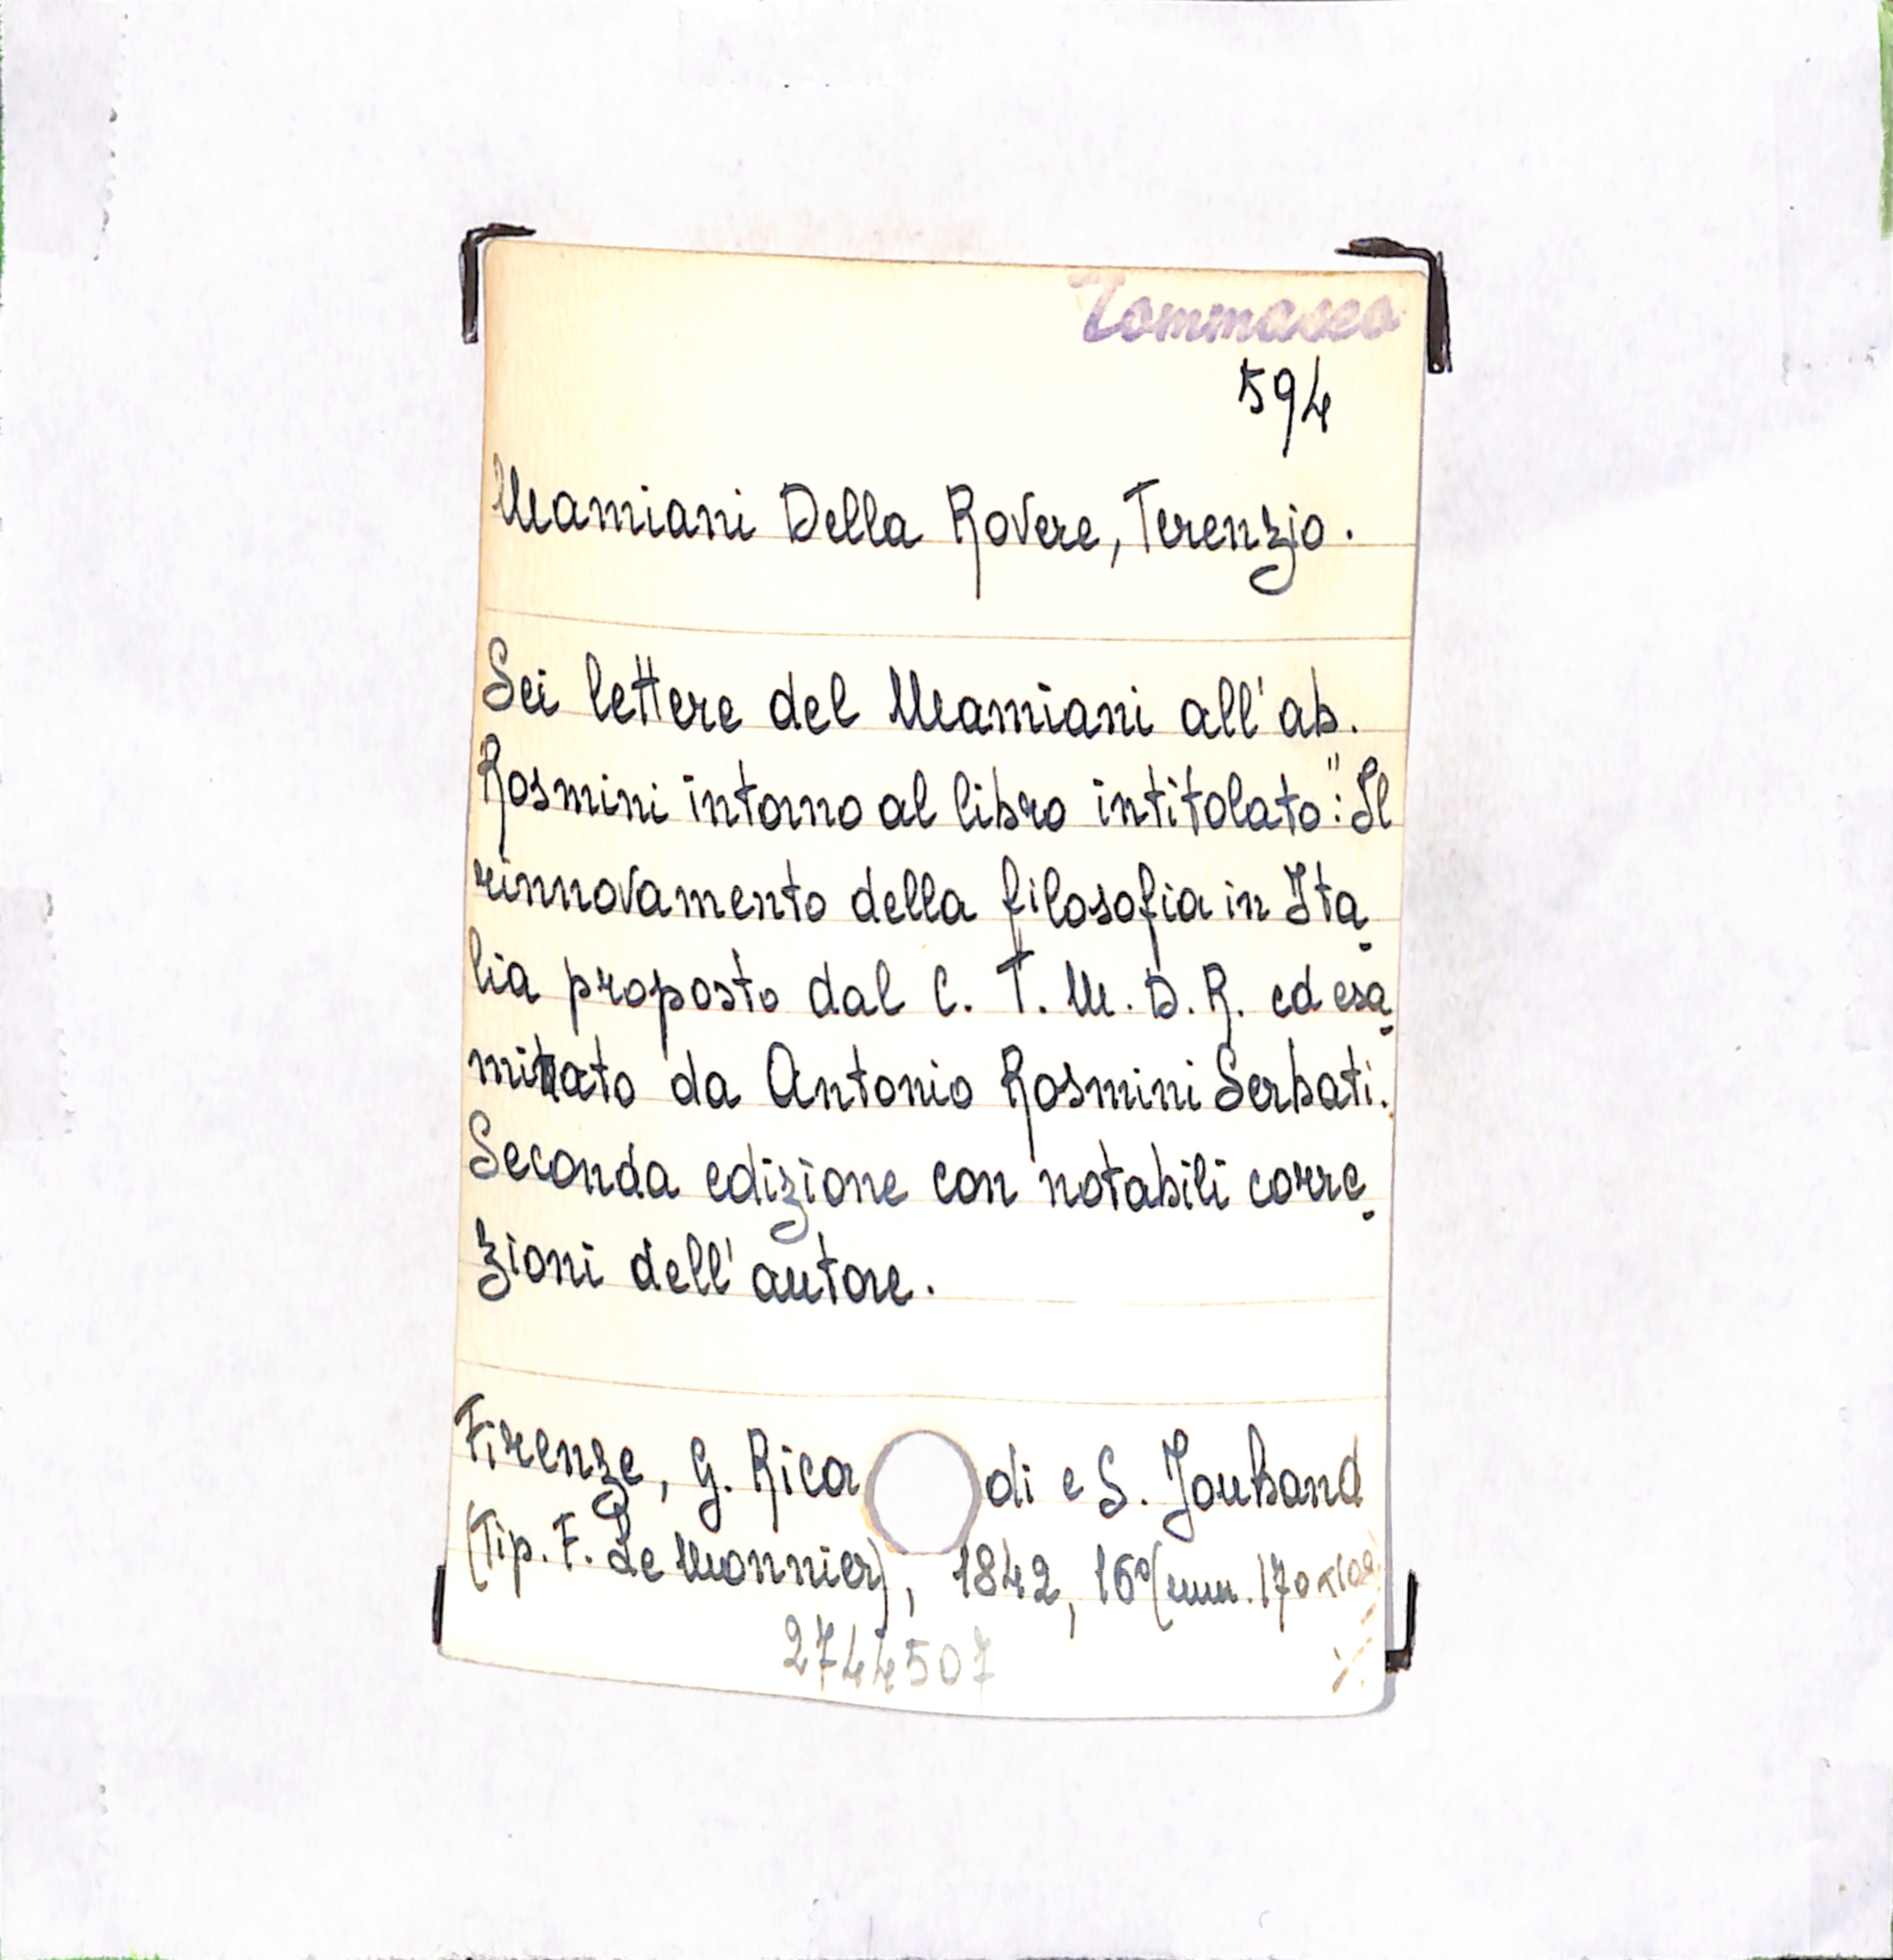 Tommaseo
594
Mamiani Della Rovere, Terenzio.
Sei lettere del Mamiani all'ab.
Rosmini intorno al libro intitolato: "Il
rinnovamento della filosofia in Ita-
lia proposto dal C. T. M. D. R. ed esa-
minato da Antonio Rosmini Serbati.
Seconda edizione con notabili corre-
zioni dell'autore.
Firenze, G. Rica di e S. Jouhaud
(Tip. F. Le Monnier), 1842, 16° (mm. 170x
2744507